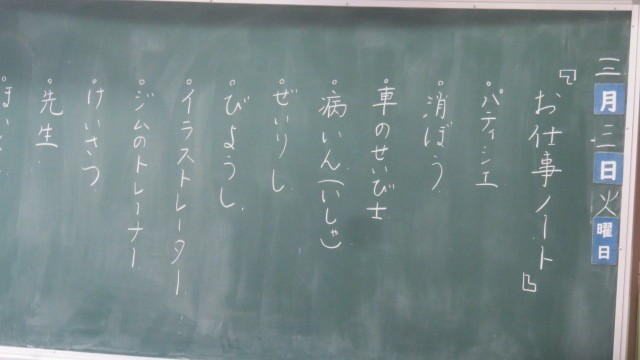 三月二日火曜日
『お仕事ノート』
。パティシエ
。消ぼう
。車のせいび士
。病いん(いしゃ)
。ぜいりし
。びようし
。イラストレーター
。ジムのトレーナー
。けいさつ
。先生